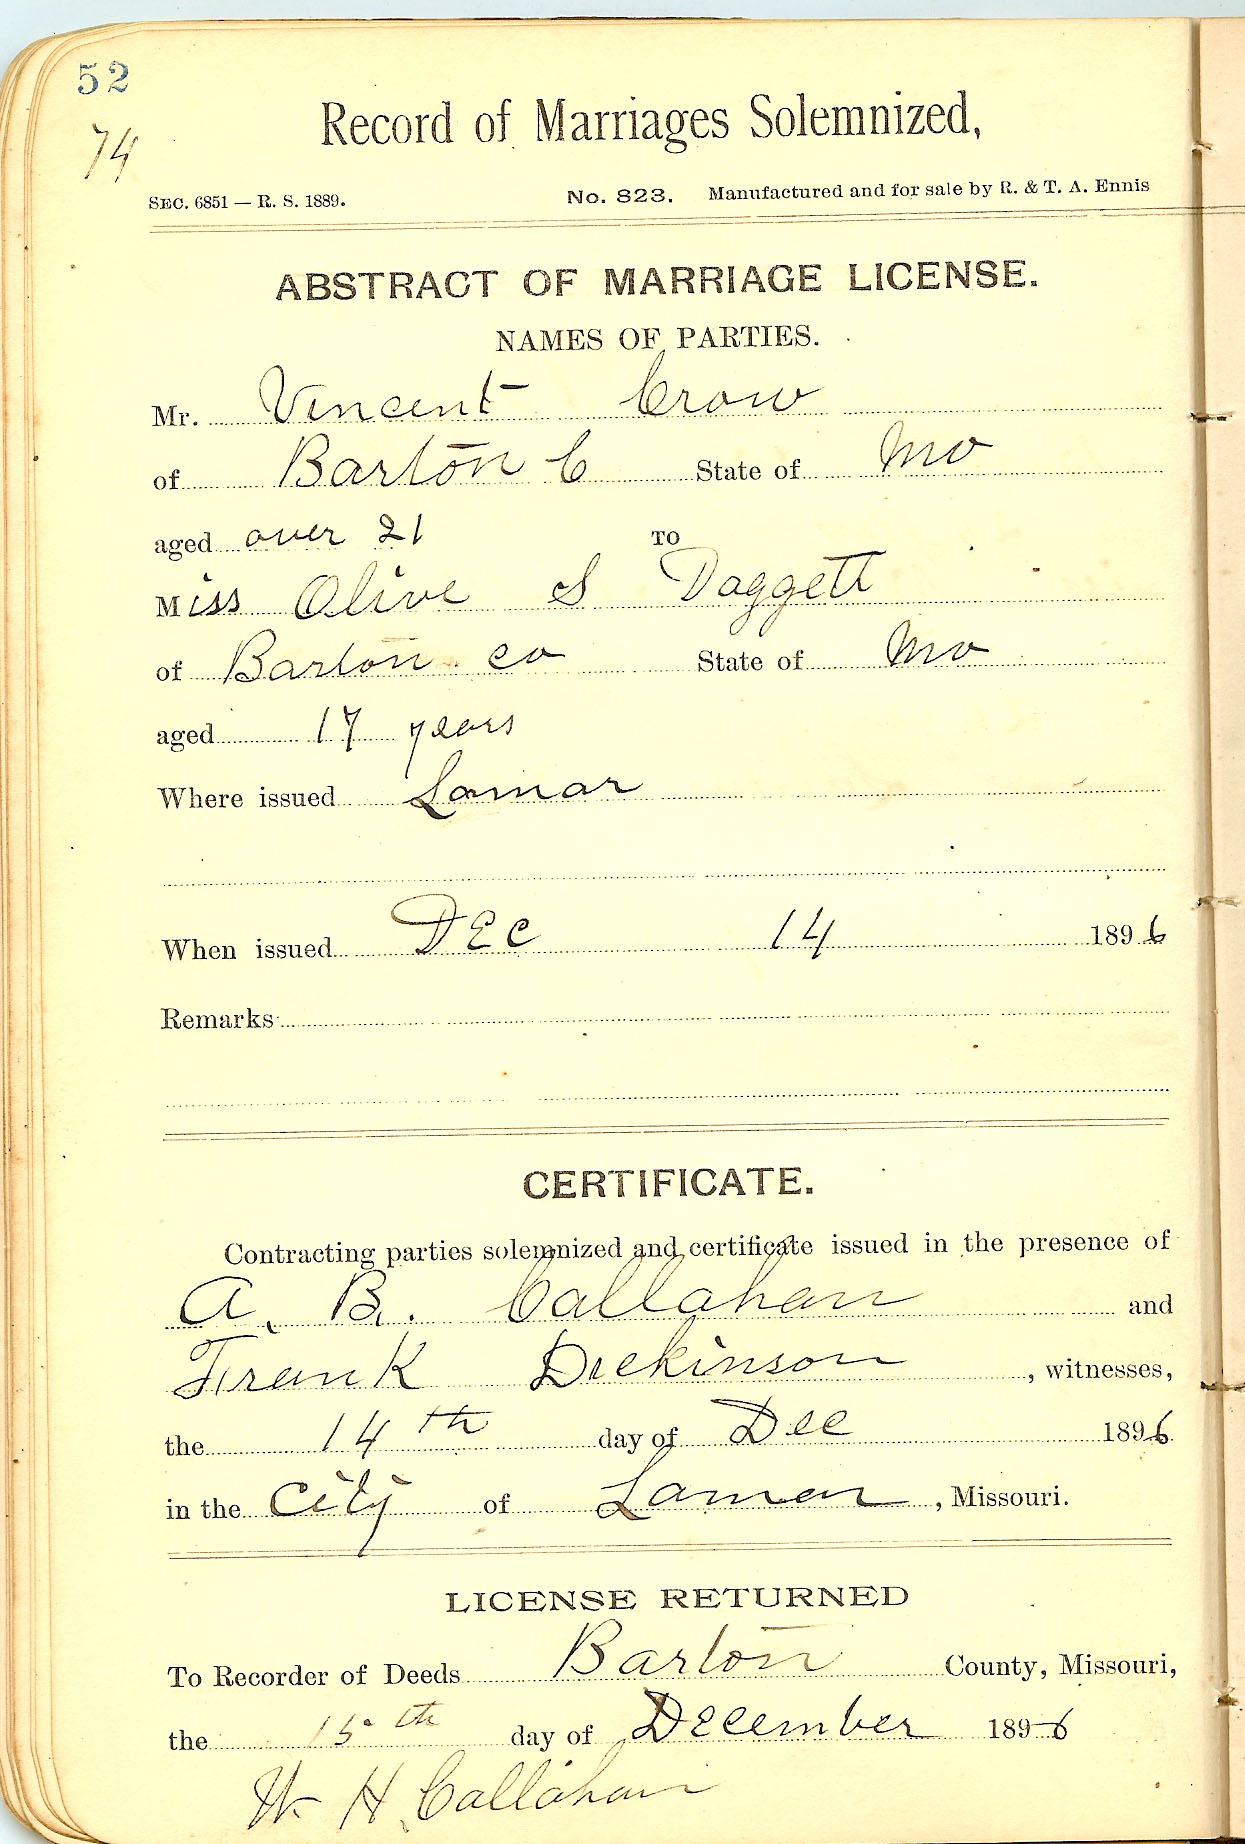 52
74
Record of Marriages Solemnized,
SEC. 6851 — R. S. 1889. No. 823. Manufactured and for sale by R. & T. A. Ennis
ABSTRACT OF MARRIAGE LICENSE.
NAMES OF PARTIES.
Mr. Vincent Crow
of Barton C State of Mo
aged over 21 TO
Miss Olive S Daggett
of Barton co State of Mo
aged 17 years
Where issued Lamar
When issued DEC 14 1896
Remarks
CERTIFICATE.
Contracting parties solemnized and certificate issued in the presence of
A. B. Callahan and
Frank Dickinson, witnesses,
the 14th day of Dec 1896
in the city of Lamar, Missouri.
LICENSE RETURNED
To Recorder of Deeds Barton County, Missouri,
the 15th day of December 1896
W. H. Callahan